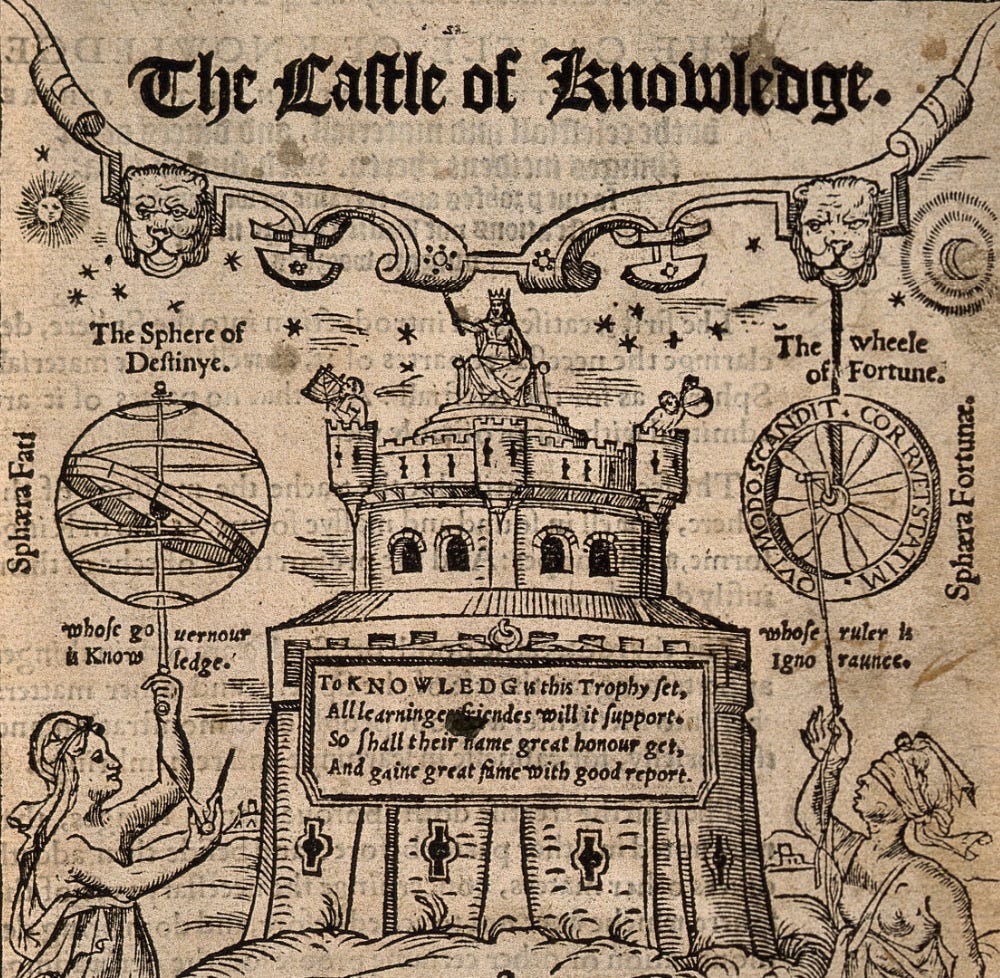 The Caſtle of Knowledge.
The Sphere of
Deſtinye.
The wheele
of Fortune.
Sphæra Fati
QVI MODO SCANDIT. CORRVET STATIM.
Sphæra Fortunæ.
whoſe gouernour
is Knowledge.
whoſe ruler is
Ignoraunce.
To KNOWLEDG is this Trophy ſet,
All learninges friendes will it ſupport.
So ſhall their name great honour get,
And gaine great fame with good report.